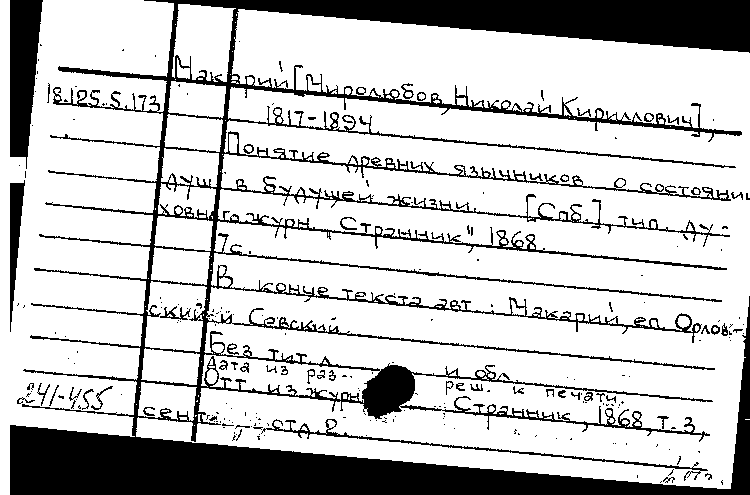 Макарий [Миролюбов, Николай Кириллович],
18.125.5.173
1817-1894.
Понятие древних язычников о состоянии
душ в будущей жизни. [Спб.], тип. ду-
ховного журн. „Странник", 1868.
7с.
В конце текста авт.: Макарий, еп. Орлов-
ский и Севский.
Без тит. л. и обл.
Дата из раз- реш. к печати.
Отт. из журн. Странник, 1868, т. 3,
241-455
сент., отд. 2.